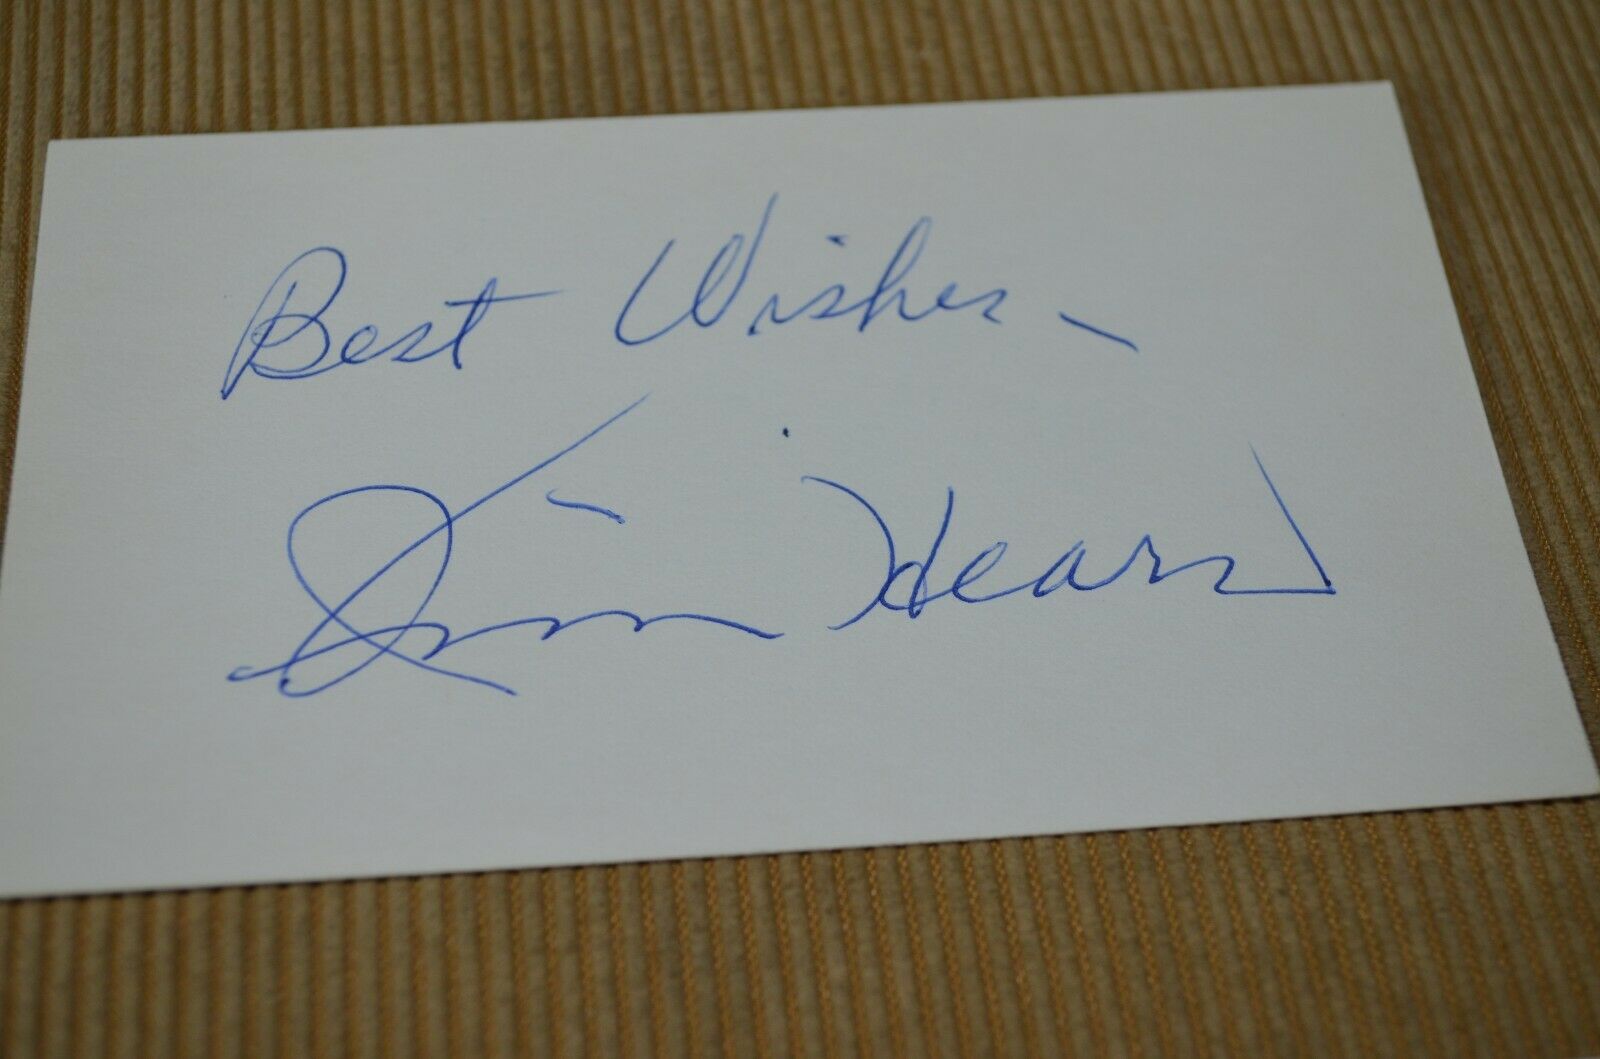 Best Wishes -
Jim Hearn